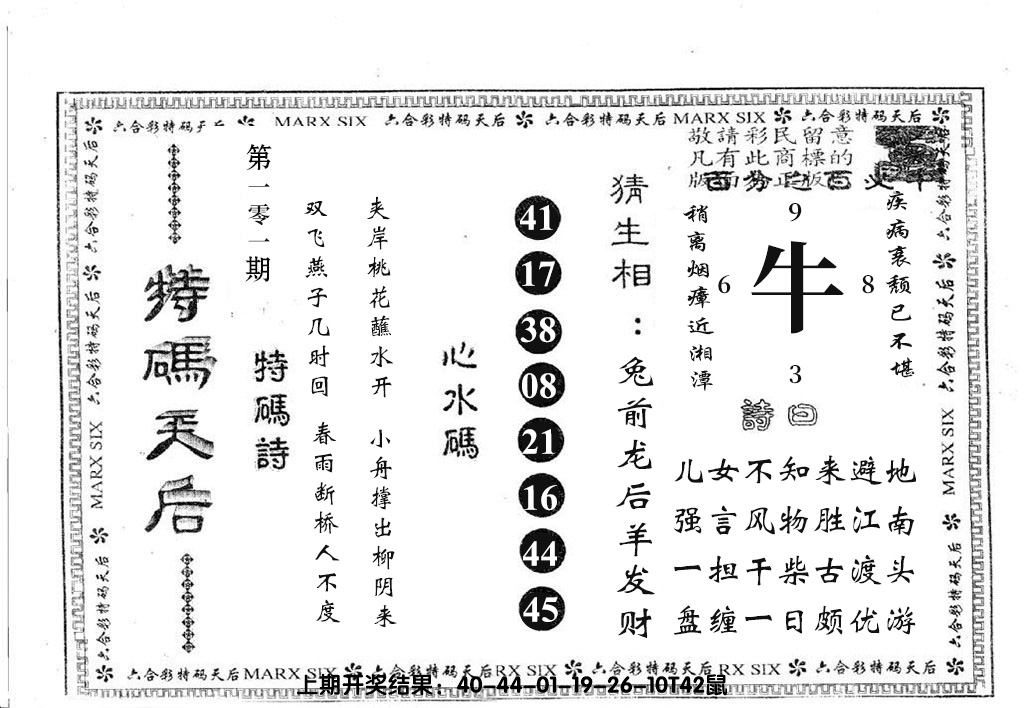 六合彩特码天后 MARX SIX 六合彩特码天后 六合彩特码天后 MARX SIX 六合彩特码天后
敬請彩民留意
凡有此商標的
版面为正版
百分之百
疾病衰颓已不堪
稍离烟瘴近湘潭
9
6
牛
8
3
詩曰
地南头游
避江渡优
来胜古颇
知物柴日
不风干一
女言担缠
儿强一盘
猜生相：兔前龙后羊发财
41
17
38
08
21
16
44
45
心水碼
夹岸桃花蘸水开 小舟撑出柳阴来
双飞燕子几时回 春雨断桥人不度
特碼詩
第一零一期
特碼天后
六合彩特码天后
六合彩特码天后
MARX SIX
六合彩特码天后
六合彩特码天后
六合彩特码天后
MARX SIX
六合彩特码天后
六合彩特码天后 MARX SIX 六合彩特码天后 RX SIX 六合彩特码天后 RX SIX 六合彩特码天后
上期开奖结果：40-44-01-19-26-10T42鼠